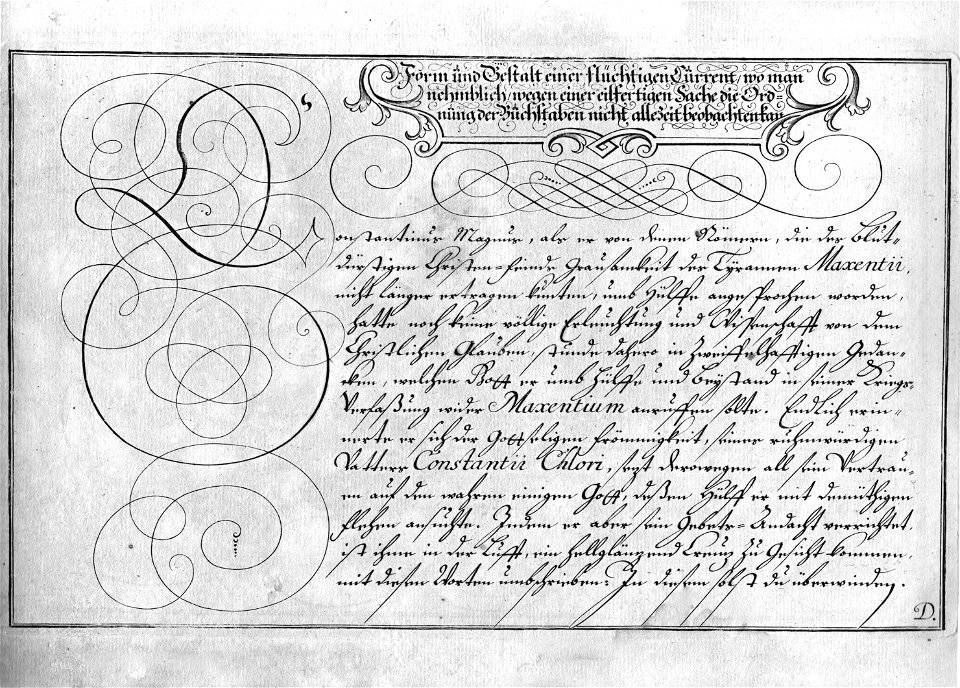 Form und Gestalt einer flüchtigen Current, wo man
nehmblich, wegen einer eilfertigen Sache die Ord-
nung der Buchstaben nicht allezeit beobachten kan.
Constantinus Magnus, als er von denen Römern, die des Blut-
dürstigen Christen-Feinds Grausamkeit des Tyrannen Maxentii,
nicht länger ertragen kunten, umb Hülffe angesprochen worden,
hatte noch keine völlige Erleuchtung und Wissenschafft von dem
Christlichen Glauben, stunde dahero in Zweiffelhafftigen Gedan-
cken, welchen Gott er umb Hülffe und Beystand in seiner Kriegs-
Verfaßung wider Maxentium anruffen solte. Endlich erin-
nerte er sich der Gottseligen Frömmigkeit, seines ruhmwürdigen
Vatters Constantii Chlori, sezt derowegen all sein Vertrau-
en auf den wahren einigen Gott, deßen Hülff er mit demüthigen
flehen ansuchte. Indem er aber sein Gebets-Andacht verrichtet,
ist ihme in der Lufft, ein hellglänzend Creuz zu Gesicht kommen,
mit diesen Worten umbschrieben: In diesem solst du überwinden.
D.